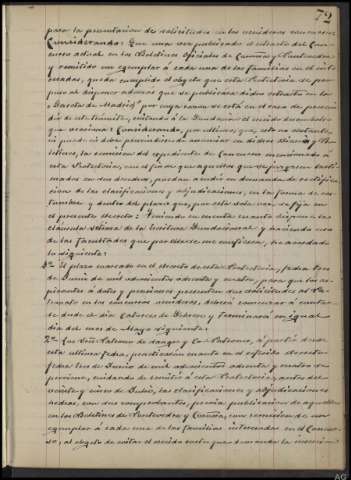 72
para la presentacion de solicitudes en los venideros concursos
Considerando: Que una vez publicado el extracto del Con-
curso actual en los Boletines Oficiales de Coruña y Pontevedra
y remitido un ejemplar á cada una de las familias en él intere-
sadas, queda cumplido el objeto que esta Protectoría se pro-
puso al disponer además que se publicara dicho extracto en la
"Gaceta de Madrid" por cuya causa se está en el caso de prescin-
dir de este trámite, evitando á la Fundacion el crecido desembolso
que ocasiona: Considerando, por último, que esto no obstante,
ni puede ni debe prescindirse de anunciar en dichos Bole-
tines, la remision del expediente de Concurso mencionado á
esta Protectoría, á fin de que aquellos que se juzguen lasti-
mados en sus derechos, puedan acudir en demanda de rectifica-
cion de las clasificaciones y adjudicaciones, en la forma de cos-
tumbre y dentro del plazo que, por esta sola vez, se fija en
el presente decreto: Teniendo en cuenta cuanto dispone la
cláusula última de la Escritura Fundacional y haciendo uso
de las facultades que por ella se me confieren, he acordado
lo siguiente:
1º El plazo marcado en el decreto de esta Protectoría, fecha tres
de Junio de mil novecientos cuarenta y cuatro, para que los as-
pirantes á dotes y pensiones presenten sus solicitudes al Pa-
tronato en los concursos venideros, deberá comenzar á contar-
se desde el dia catorce de Febrero y terminará en igual
dia del mes de Mayo siguiente.
2º Los Sres Patrono de sangre y Co-Patrono, á partir desde
esta última fecha, practicarán cuanto en el referido decreto
fecha tres de Junio de mil novecientos cuarenta y cuatro se
previene, cuidando de remitir á esta Protectoría, antes del
veinte y cinco de Julio, las clasificaciones y adjudicaciones
hechas, con sus comprobantes, previa publicacion de aquellas
en los Boletines de Pontevedra y Coruña, con remision de un
ejemplar á cada una de las familias interesadas en el Concur-
so, al objeto de evitar el crecido costo que demanda la insercion